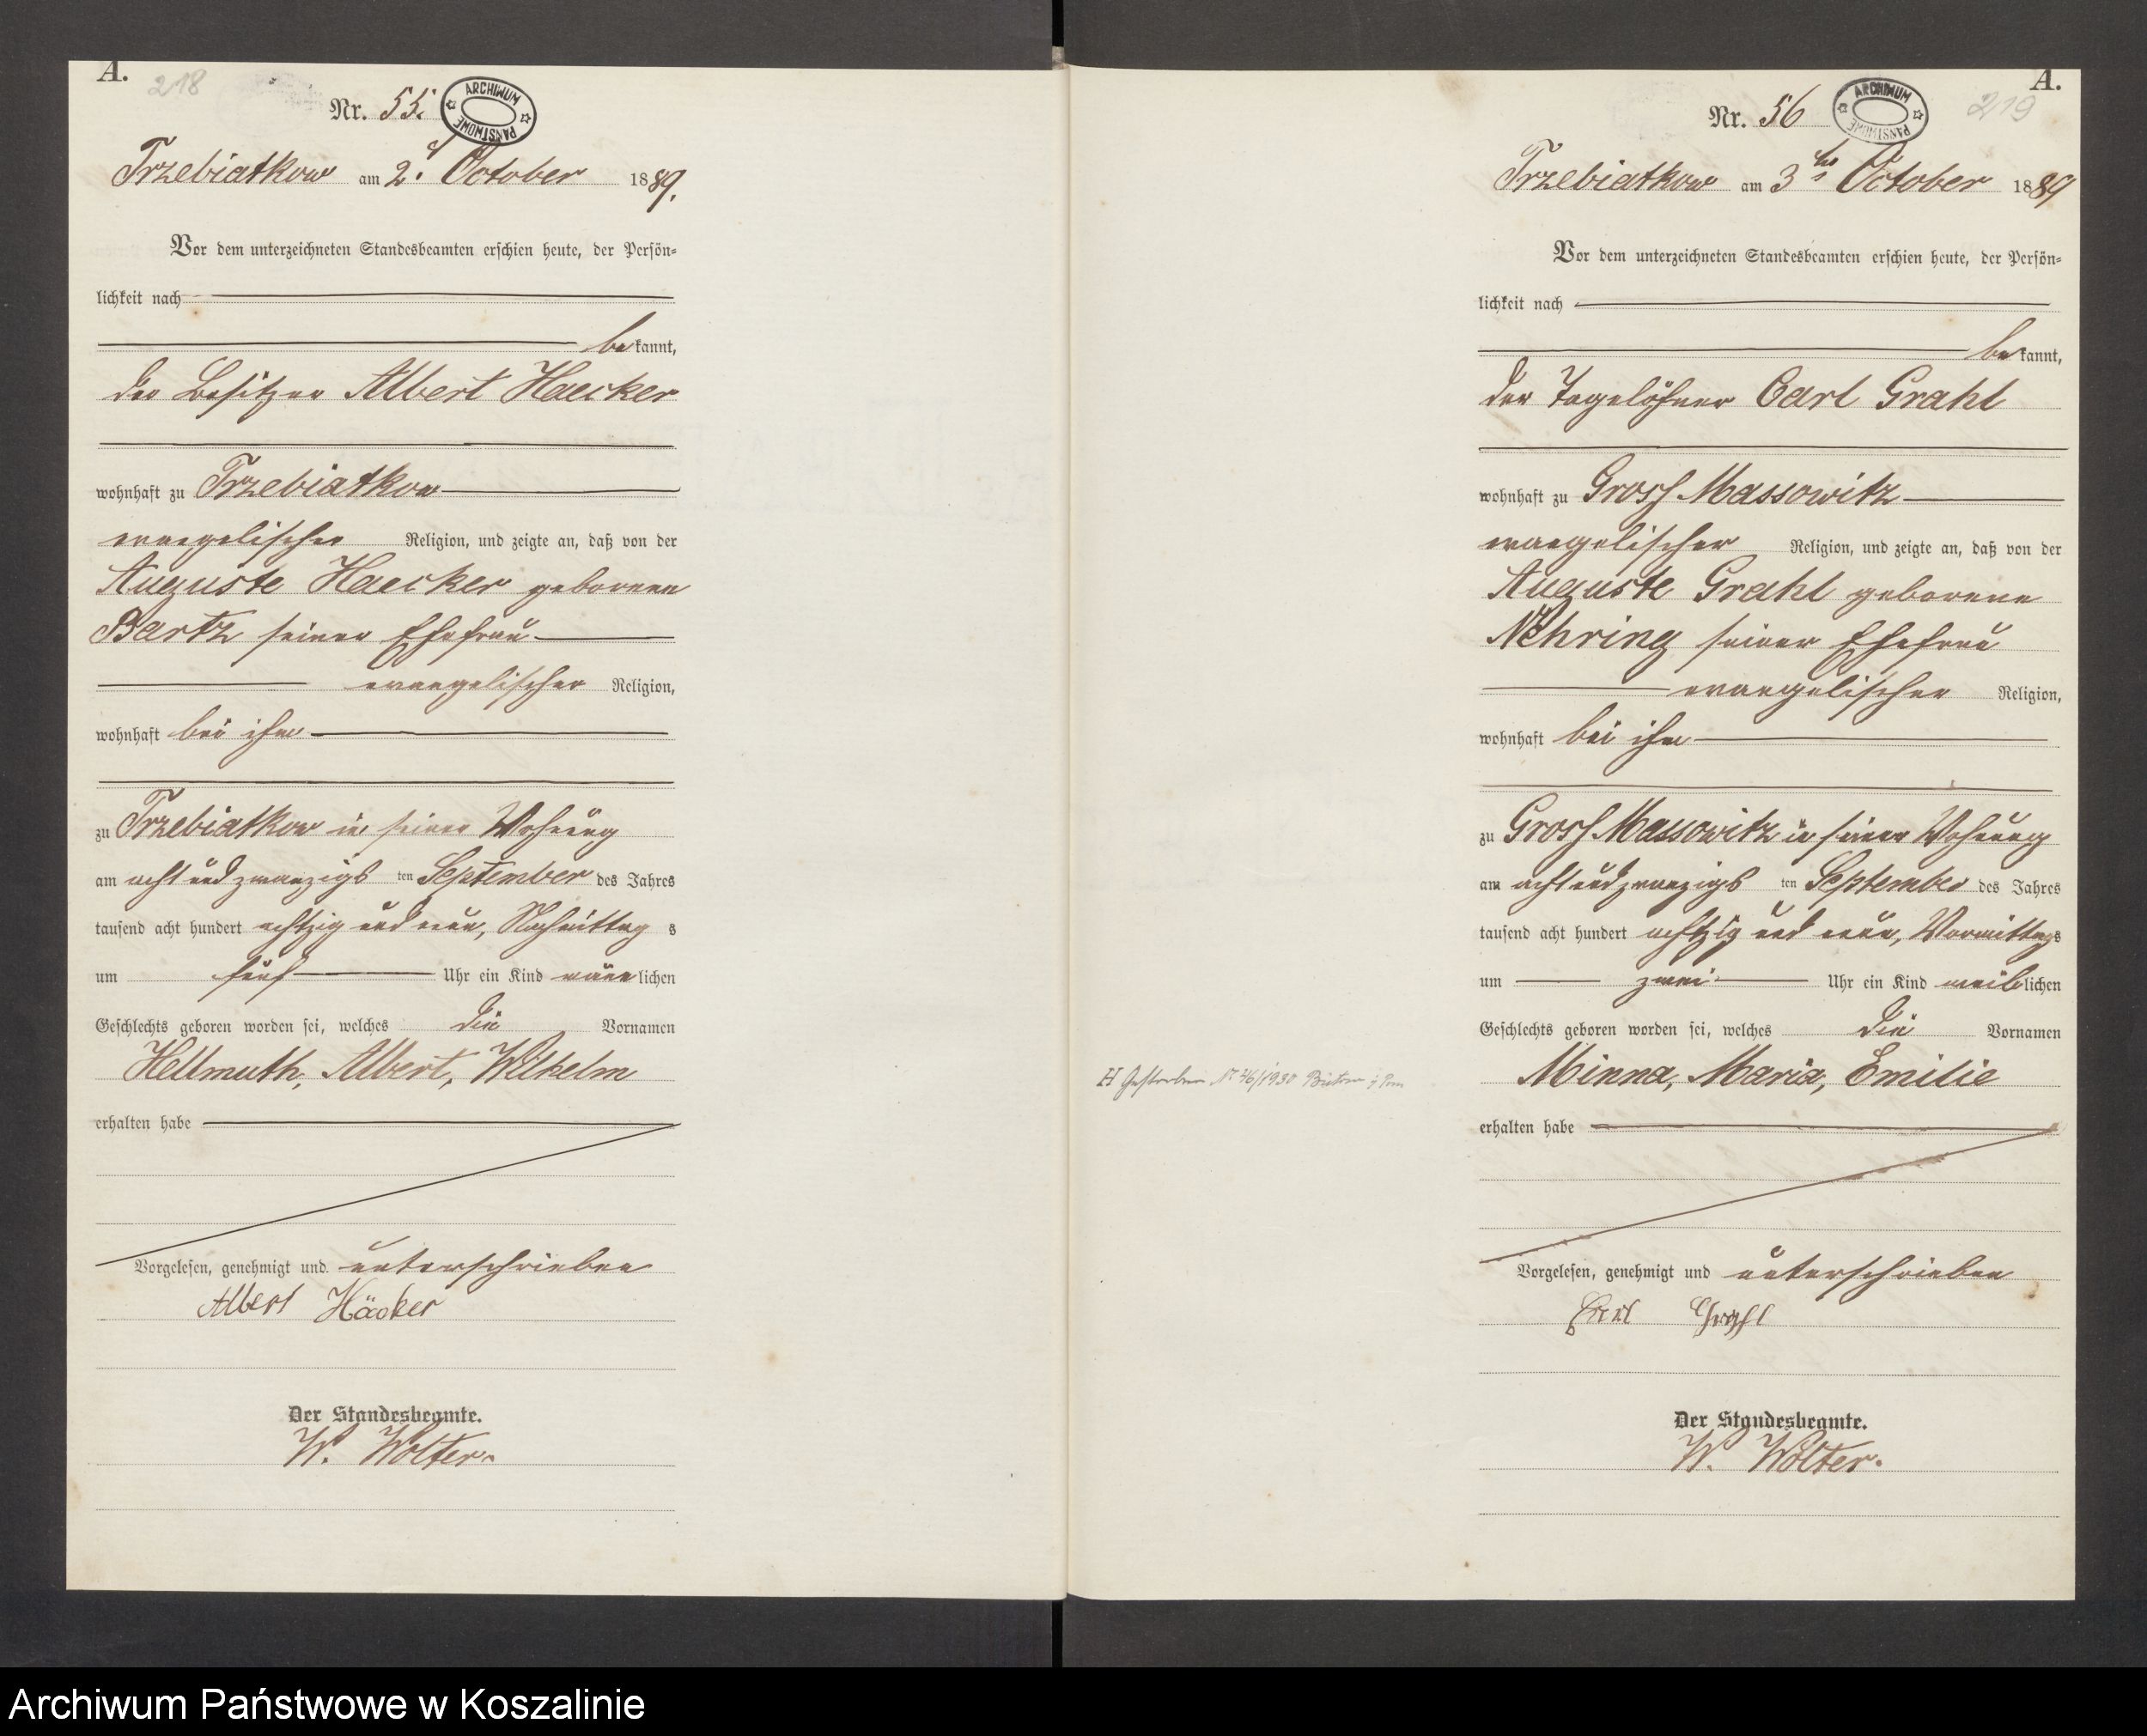 A.
218
Nr. 55.
ARCHIWUM PAŃSTWOWE
Trzebiatkow am 2. October 1889.
Vor dem unterzeichneten Standesbeamten erschien heute, der Persön-
lichkeit nach
bekannt,
der Besitzer Albert Haecker
wohnhaft zu Trzebiatkow
evangelischer Religion, und zeigte an, daß von der
Auguste Haecker geborenen
Bartz seiner Ehefrau
evangelischer Religion,
wohnhaft bei ihm
zu Trzebiatkow in seiner Wohnung
am acht und zwanzigsten September des Jahres
tausend acht hundert achtzig und neun, Nachmittags
um fünf Uhr ein Kind männlichen
Geschlechts geboren worden sei, welches die Vornamen
Hellmuth, Albert, Wilhelm
erhalten habe
Vorgelesen, genehmigt und unterschrieben
Albert Häcker
Der Standesbeamte.
W. Wolter.
A.
219
Nr. 56
ARCHIWUM PAŃSTWOWE
Trzebiatkow am 3ten October 1889
Vor dem unterzeichneten Standesbeamten erschien heute, der Persön-
lichkeit nach
bekannt,
der Tagelöhner Carl Grahl
wohnhaft zu Gross Massowitz
evangelischer Religion, und zeigte an, daß von der
Auguste Grahl geborene
Nehring seiner Ehefrau
evangelischer Religion,
wohnhaft bei ihm
zu Gross Massowitz in seiner Wohnung
am acht und zwanzigsten September des Jahres
tausend acht hundert achtzig und neun, Vormittags
um zwei Uhr ein Kind weiblichen
Geschlechts geboren worden sei, welches die Vornamen
H Gestorben Nr 46/1930 Bütow i Pom
Minna, Maria, Emilie
erhalten habe
Vorgelesen, genehmigt und unterschrieben
Carl Grahl
Der Standesbeamte.
W. Wolter.
Archiwum Państwowe w Koszalinie